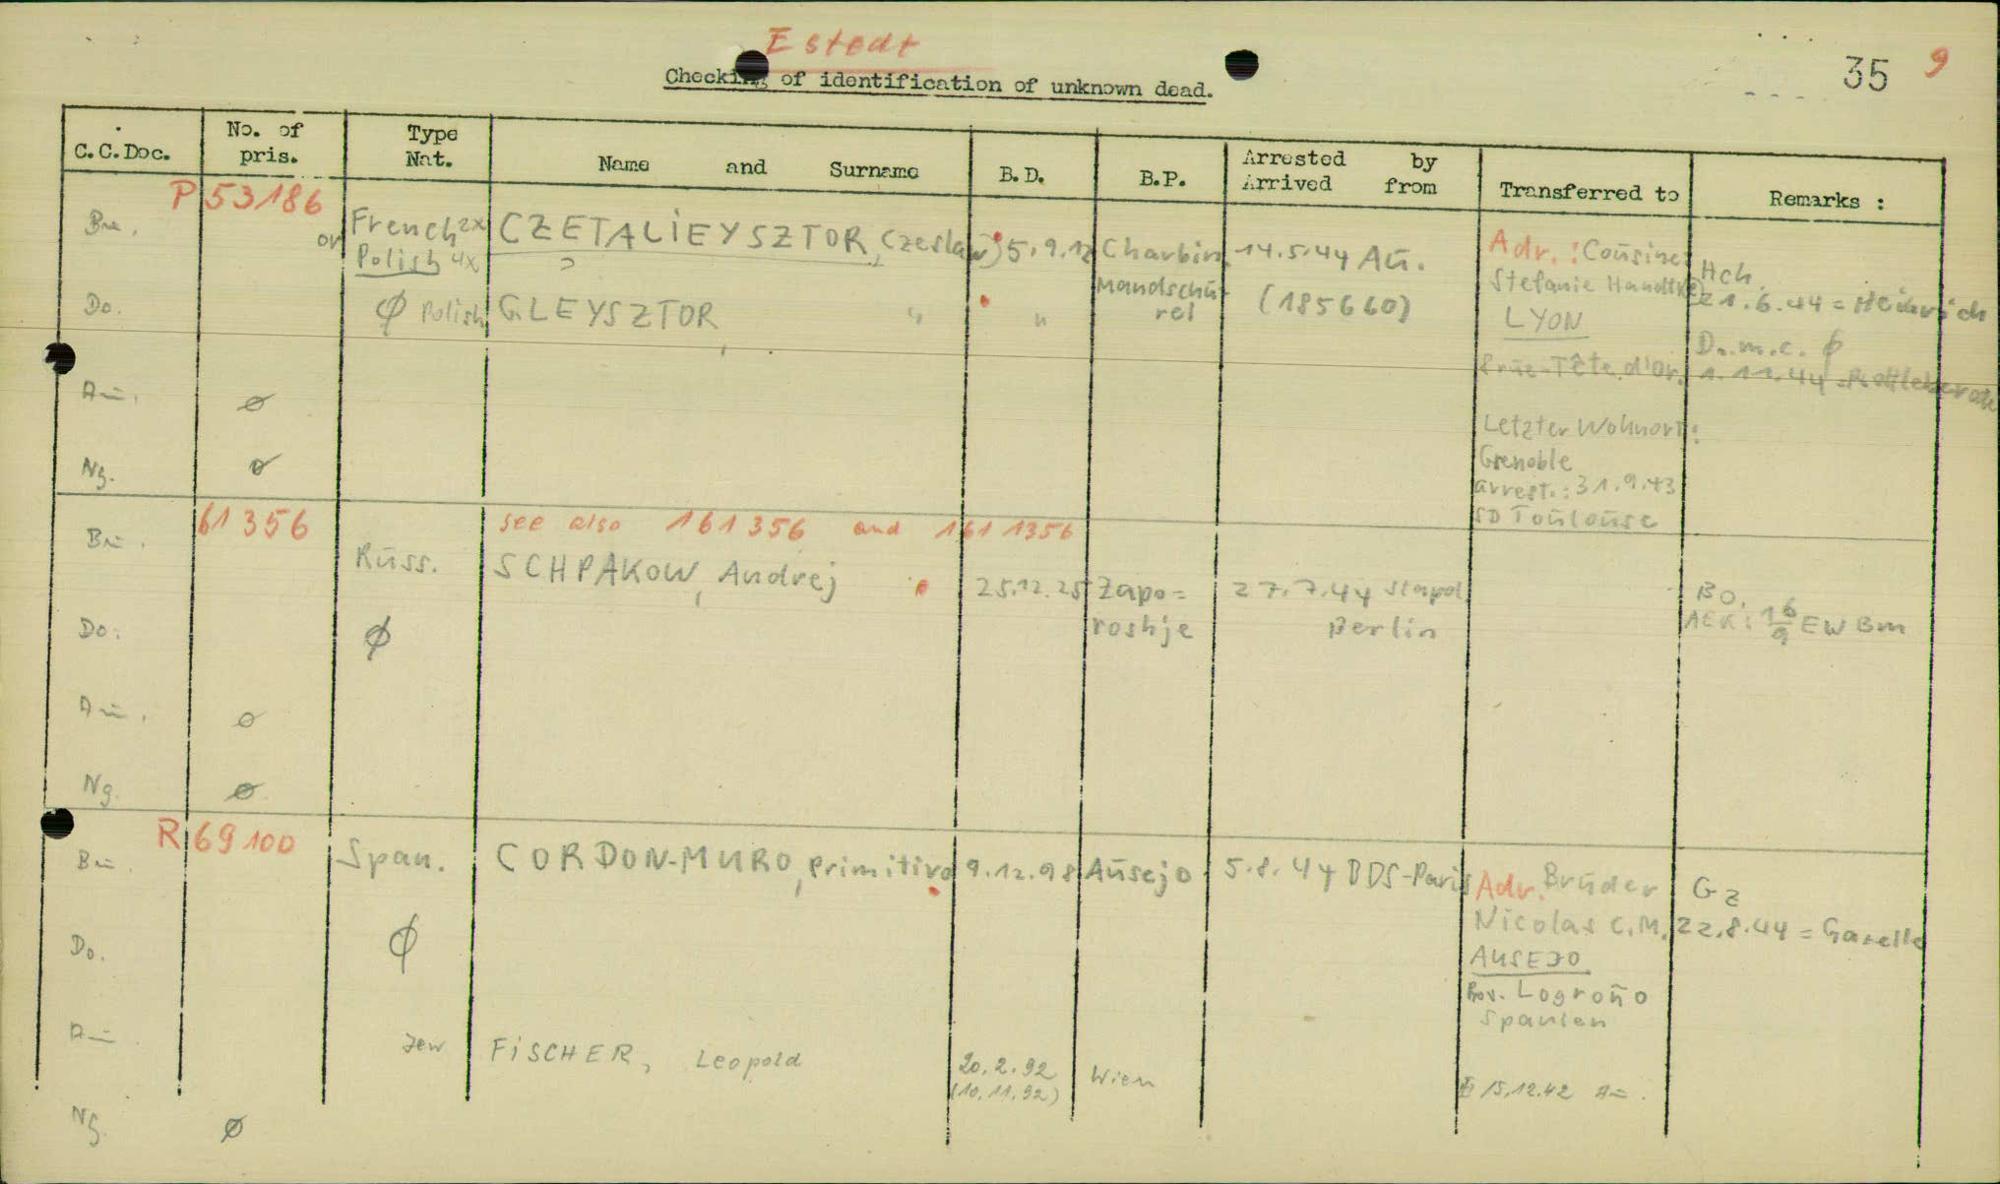 Estedt
Checking of identification of unknown dead.
35 9
C.C.Doc. No. of pris. Type Nat. Name and Surname B.D. B.P. Arrested by Arrived from Transferred to Remarks :
P 53186
Bu. or French 2x CZETALIEYSZTOR, (Czeslaw) 5.9.12 Charbin 14.5.44 Au. Adr.: Cousine
Polish 4x Mandschu- Stefanie Hch.
Do. ø Polish GLEYSZTOR " " rei (185660) LYON 21.6.44 = Heinrich
Do. m.c. ø
Rue-Tête d'Or. 1.11.44
Au. ø
Letzter Wohnort:
Ng. ø Grenoble
arrest.: 31.9.43
SD Toulouse
61356 see also 161356 and 1611356
Bu. Russ. SCHPAKOW, Andrej 25.12.25 Zapo= 27.7.44 Stapol Bo.
roshje Berlin AEK: 16/9 EW Bm
Do. ø
Au. ø
Ng. ø
R 69100
Bu. Span. CORDON-MURO, Primitivo 9.12.98 Ausejo 5.8.44 BDS-Paris Adr. Bruder Gz
Nicolas C.M. 22.8.44 = Gazelle
Do. ø AUSEJO
Prov. Logroño
Spanien
Au Jew FISCHER, Leopold 20.2.92 Wien
(10.11.92) 15.12.42 Au.
Ng. ø